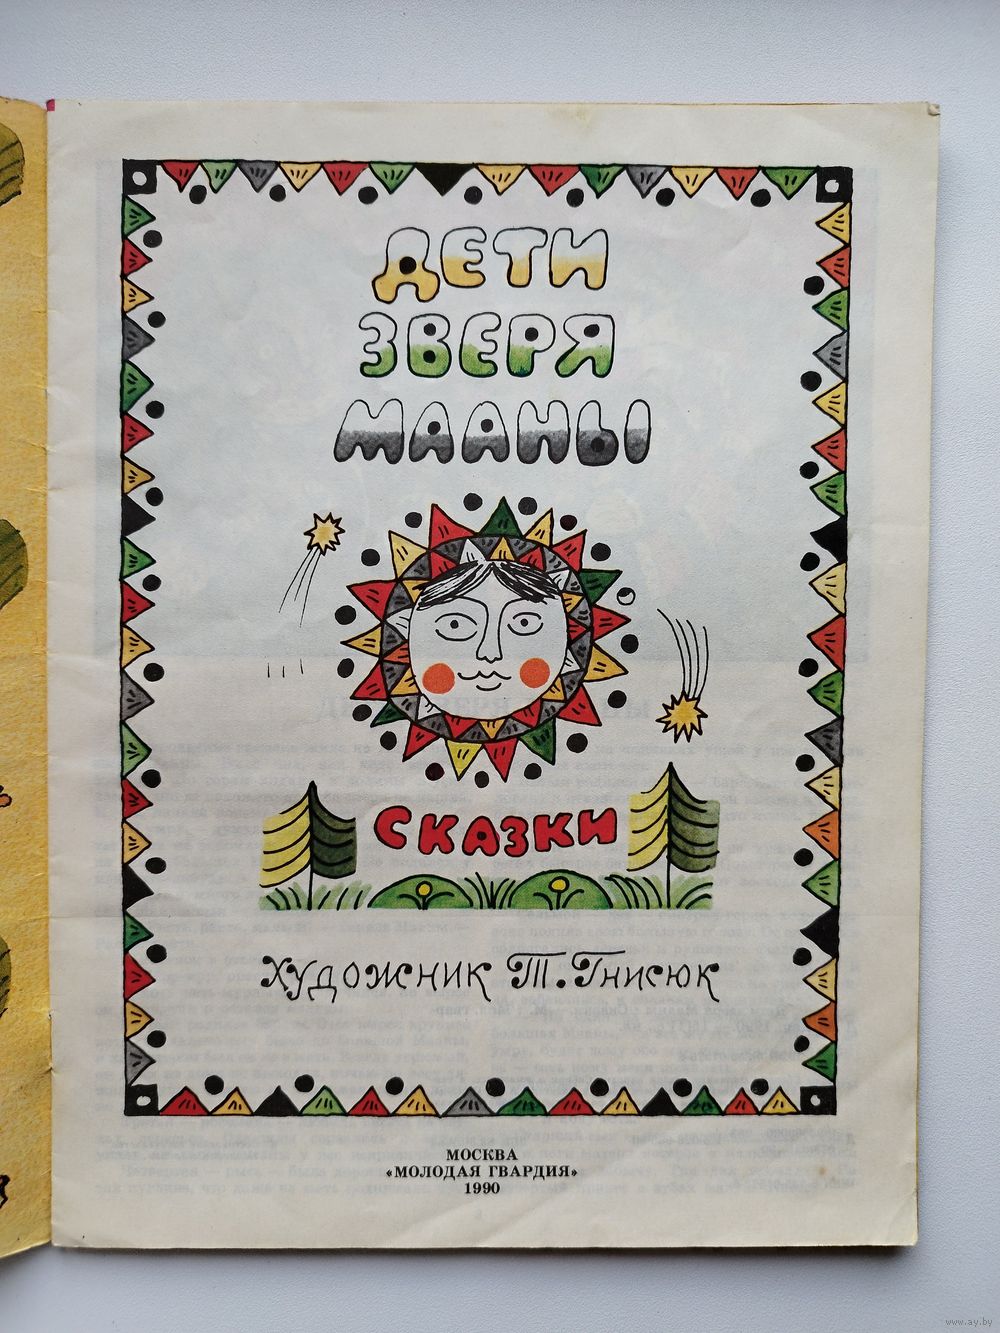 ДЕТИ
ЗВЕРЯ
МААНЫ
СКАЗКИ
ХУДОЖНИК Т. Гнисюк
МОСКВА
«МОЛОДАЯ ГВАРДИЯ»
1990
www.ay.by